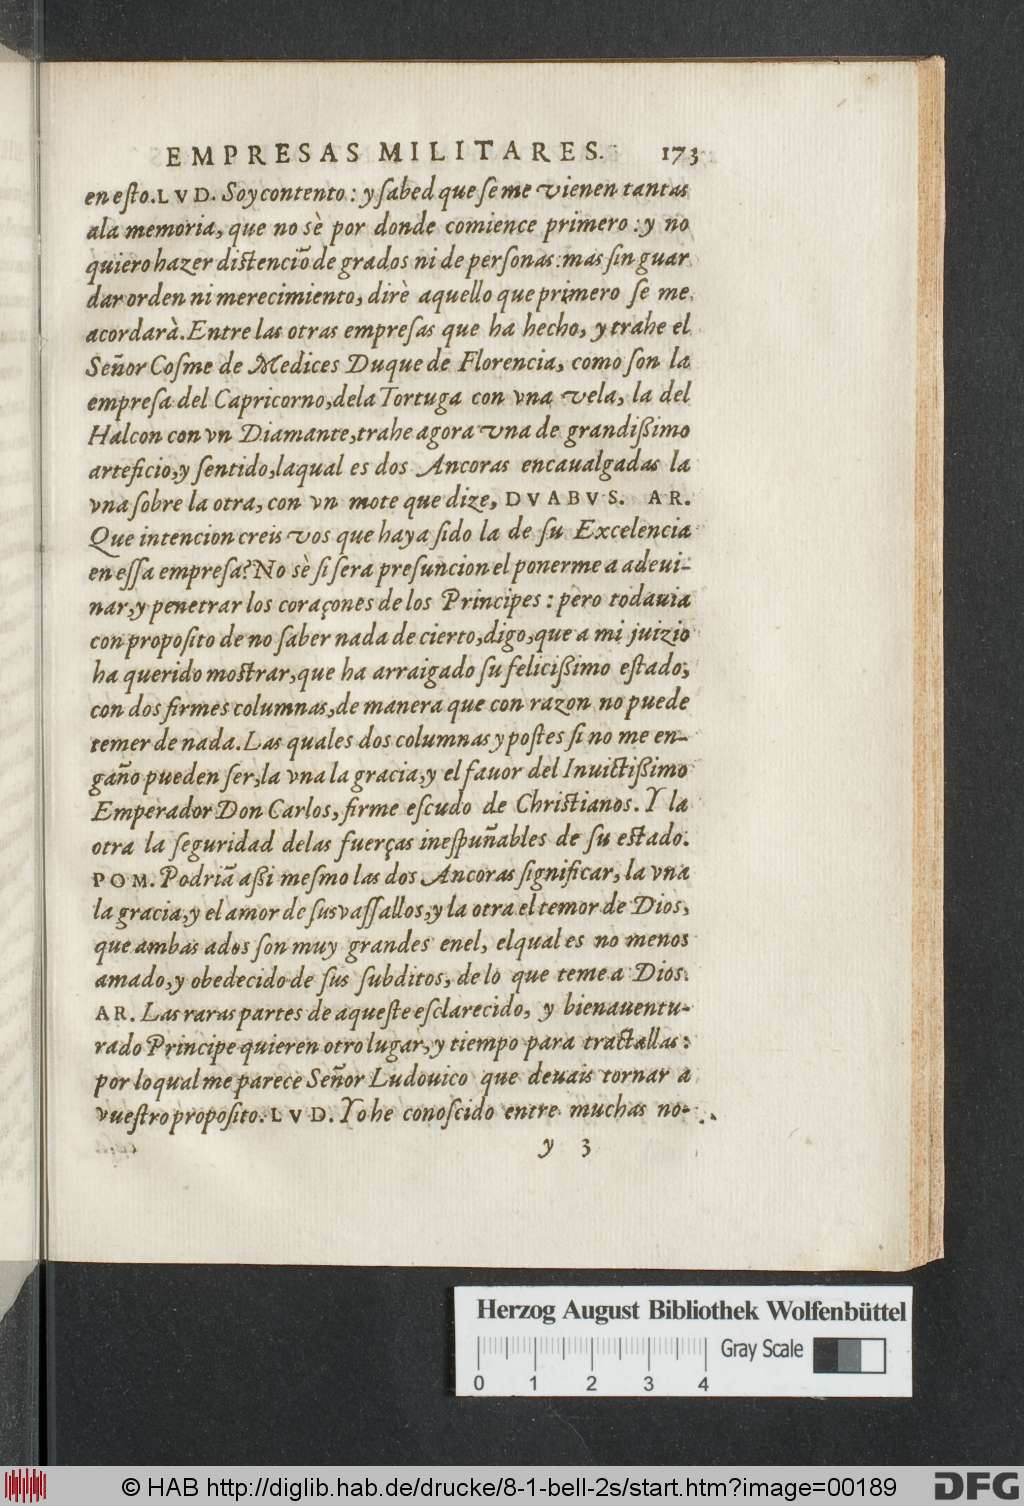 EMPRESAS MILITARES. 173
en eſto. LVD. Soy contento: y ſabed que ſe me vienen tantas
ala memoria, que no sè por donde comience primero: y no
quiero hazer diſtenciõ de grados ni de perſonas: mas ſin guar
dar orden ni merecimiento, dirè aquello que primero ſe me
acordarà. Entre las otras empreſas que ha hecho, y trahe el
Señor Coſme de Medices Duque de Florencia, como ſon la
empreſa del Capricorno, dela Tortuga con vna vela, la del
Halcon con vn Diamante, trahe agora vna de grandißimo
arteficio, y ſentido, laqual es dos Ancoras encaualgadas la
vna ſobre la otra, con vn mote que dize, DVABVS. AR.
Que intencion creis vos que haya ſido la de ſu Excelencia
en eſſa empreſa? No sè ſi ſera preſuncion el ponerme a adeui-
nar, y penetrar los coraçones de los Principes: pero todauia
con propoſito de no ſaber nada de cierto, digo, que a mi juizio
ha querido moſtrar, que ha arraigado ſu felicißimo eſtado,
con dos firmes columnas, de manera que con razon no puede
temer de nada. Las quales dos columnas y poſtes ſi no me en-
gaño pueden ſer, la vna la gracia, y el fauor del Inuictißimo
Emperador Don Carlos, firme eſcudo de Chriſtianos. Y la
otra la ſeguridad delas fuerças ineſpuñables de ſu eſtado.
POM. Podriã aßi meſmo las dos Ancoras ſignificar, la vna
la gracia, y el amor de ſus vaſſallos, y la otra el temor de Dios,
que ambas ados ſon muy grandes enel, elqual es no menos
amado, y obedecido de ſus ſubditos, de lo que teme a Dios.
AR. Las raras partes de aqueſte eſclarecido, y bienauentu-
rado Principe quieren otro lugar, y tiempo para tractallas:
por loqual me parece Señor Ludouico que deuais tornar a
vueſtro propoſito. LVD. Yo he conoſcido entre muchas no-
y 3
Herzog August Bibliothek Wolfenbüttel
Gray Scale
0 1 2 3 4
© HAB http://diglib.hab.de/drucke/8-1-bell-2s/start.htm?image=00189
DFG